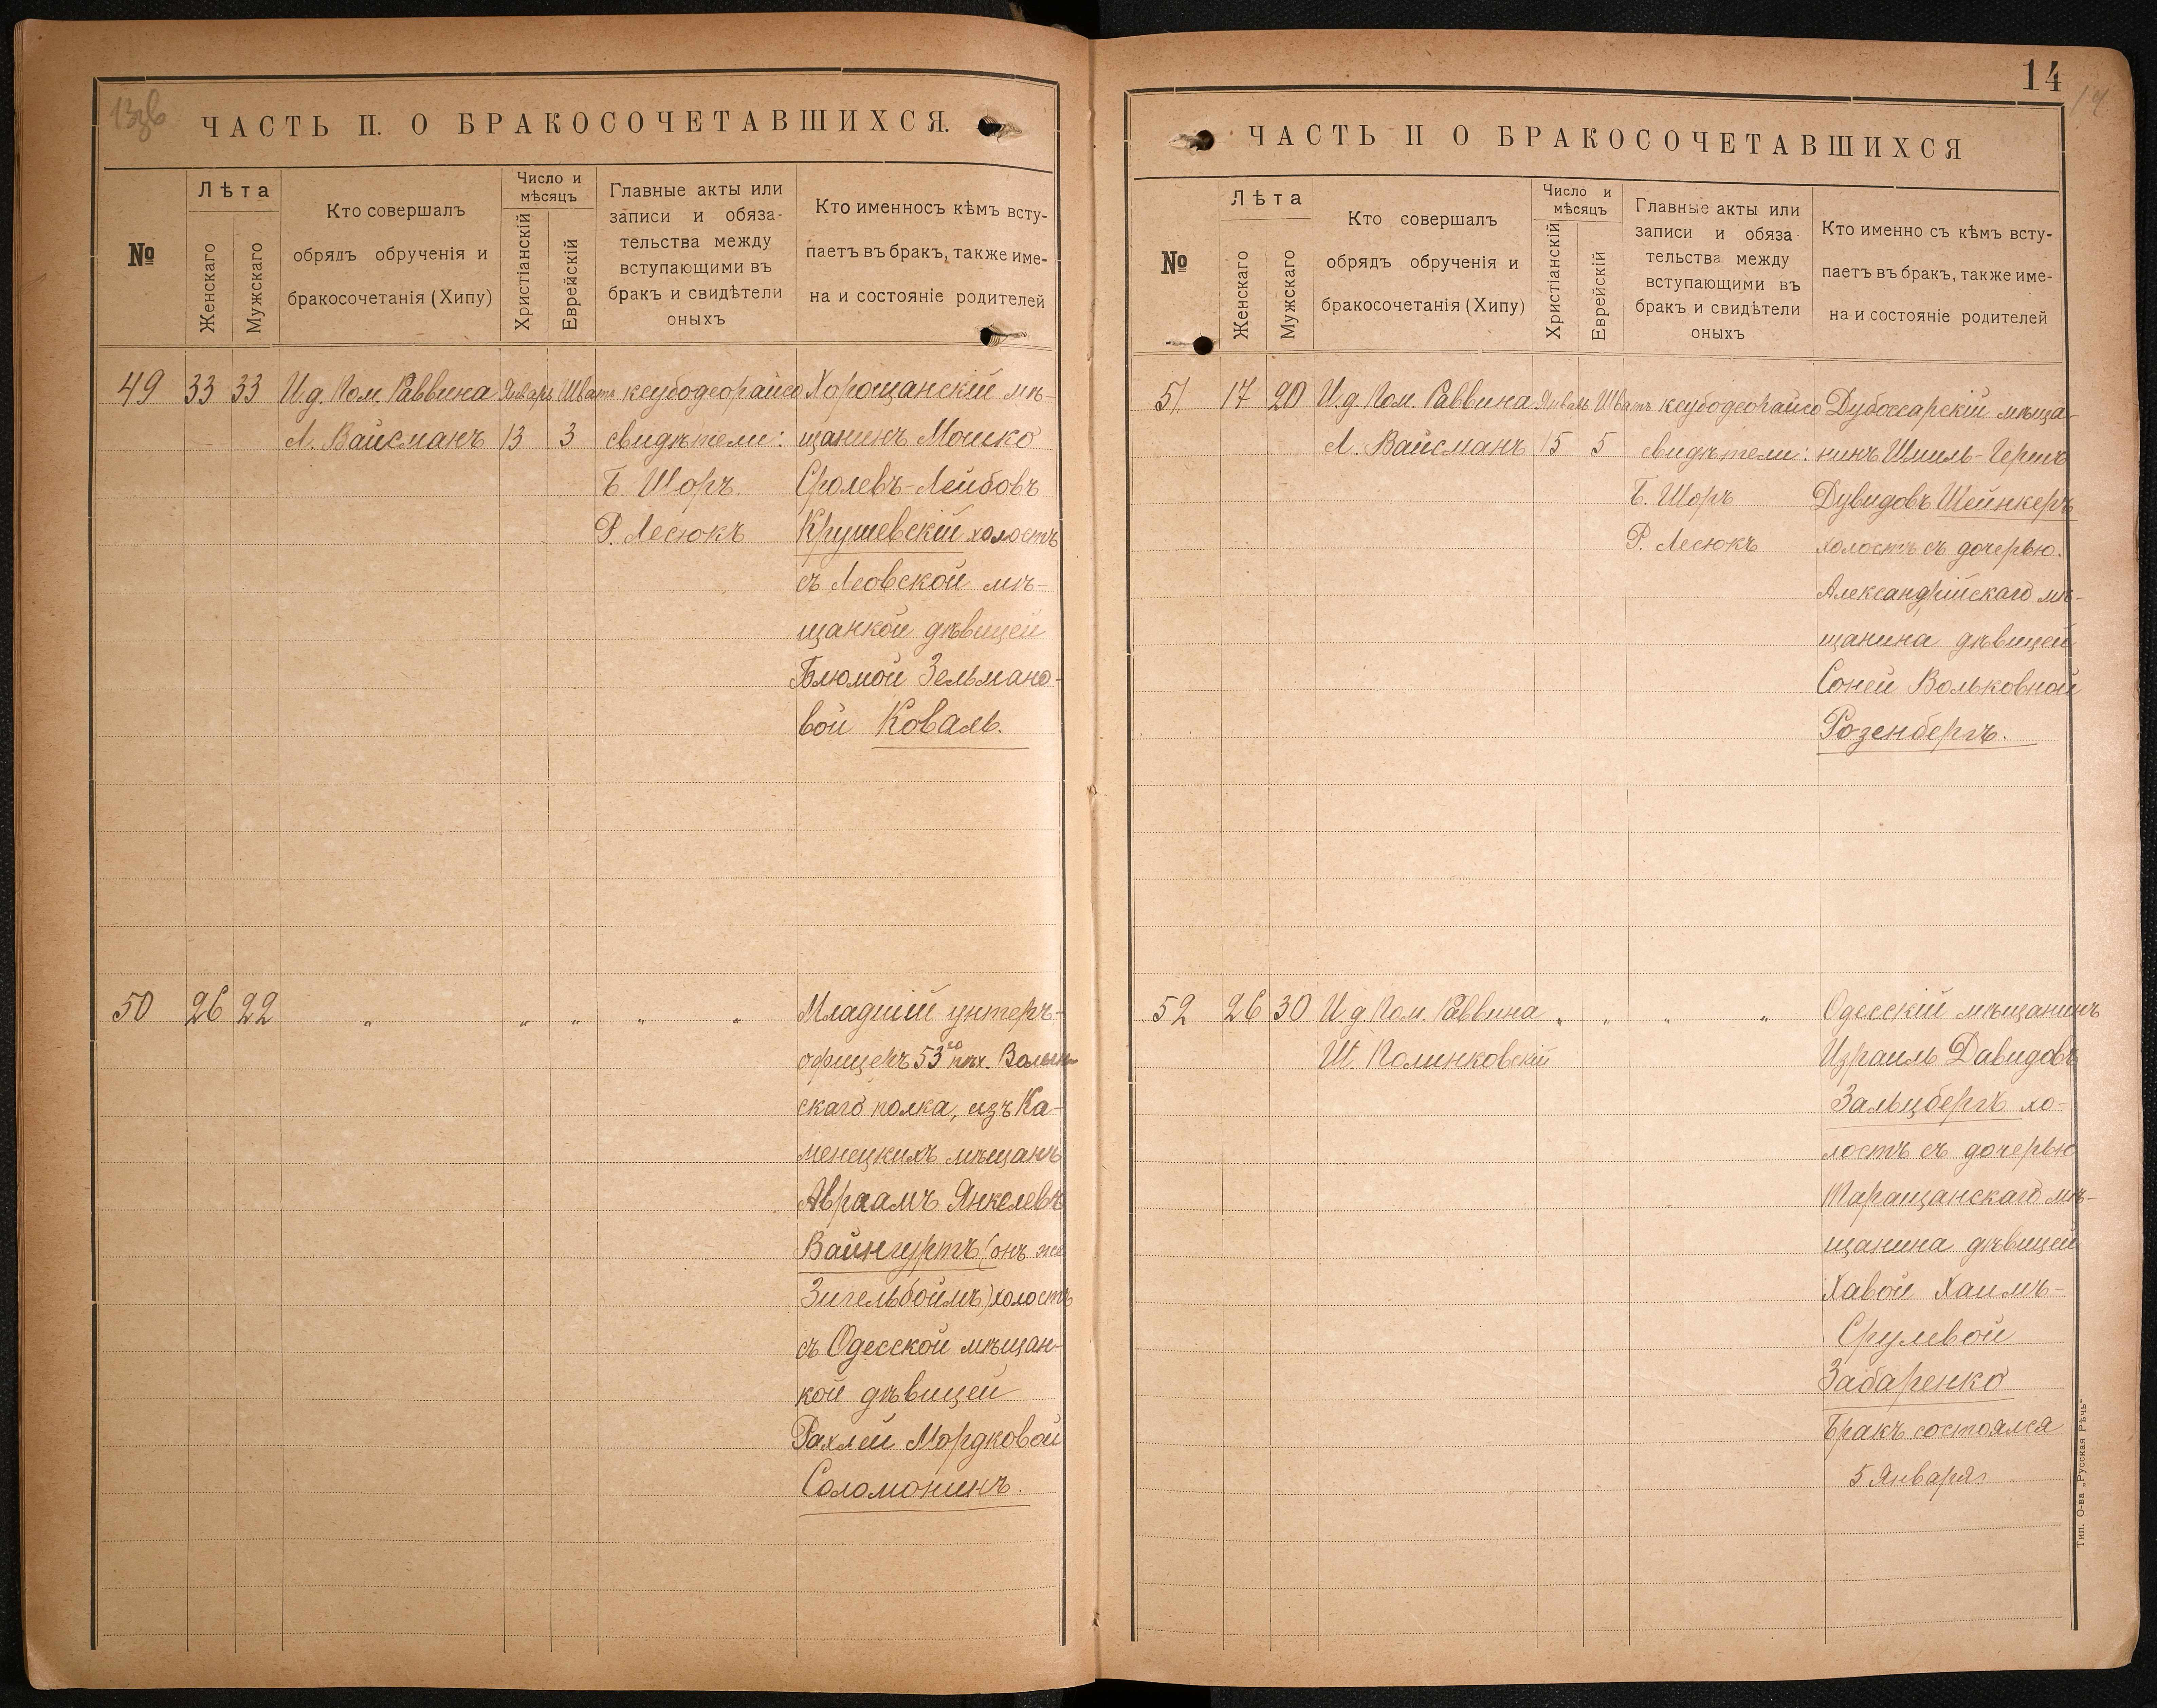 13зв
ЧАСТЬ II. О БРАКОСОЧЕТАВШИХСЯ.
№
Лѣта
Женскаго
Мужскаго
Кто совершалъ
обрядъ обрученія и
бракосочетанія (Хипу)
Число и
мѣсяцъ
Христіанскій
Еврейскій
Главные акты или
записи и обяза-
тельства между
вступающими въ
бракъ и свидѣтели
оныхъ
Кто именносъ кѣмъ всту-
паетъ въ бракъ, также име-
на и состояніе родителей
49 33 33 И.д. Пом. Раввина Январь Шватъ ксубодеорайсо Хорощанскій мѣ-
Л. Вайсманъ 13 3 свидѣтели: щанинъ Мошко
Б. Шоръ Сролевъ-Лейбовъ
Р. Лесюкъ Крушевскій холостъ
съ Леовской мѣ-
щанкой дѣвицей
Блюмой Зельмано-
вой Коваль.
50 26 22 „ „ „ „ „ Младшій унтеръ-
офицеръ 53го пѣх. Волын-
скаго полка, изъ Ка-
менецкихъ мѣщанъ
Авраамъ Янкелевъ
Вайнгуртъ (онъ же
Зигельбоймъ) холостъ
съ Одесской мѣщан-
кой дѣвицей
Рахлей Мордковой
Соломонинъ.
14
14
ЧАСТЬ II О БРАКОСОЧЕТАВШИХСЯ
№
Лѣта
Женскаго
Мужскаго
Кто совершалъ
обрядъ обрученія и
бракосочетанія (Хипу)
Число и
мѣсяцъ
Христіанскій
Еврейскій
Главные акты или
записи и обяза
тельства между
вступающими въ
бракъ и свидѣтели
оныхъ
Кто именно съ кѣмъ всту-
паетъ въ бракъ, также име-
на и состояніе родителей
51. 17 20 И.д Пом. Раввина Январь Шватъ ксубодеорайсо Дубоссарскій мѣща-
Л. Вайсманъ 15 5 свидѣтели: нинъ Шмиль-Гершъ
Б. Шоръ Дувидовъ Шейнкеръ
Р. Лесюкъ холостъ съ дочерью
Александрійскаго мѣ-
щанина дѣвицей
Соней Вольковной
Розенбергъ.
52 26 30 И.д Пом. Раввина „ „ „ „ Одесскій мѣщанинъ
Ш. Полинковскій Израиль Давидовъ
Зальцбергъ хо-
лостъ съ дочерью
Таращанскаго мѣ-
щанина дѣвицей
Хавой Хаимъ-
Срулевой
Забаренко
Бракъ состоялся
5 Января
Тип. О-ва „Русская Рѣчь"